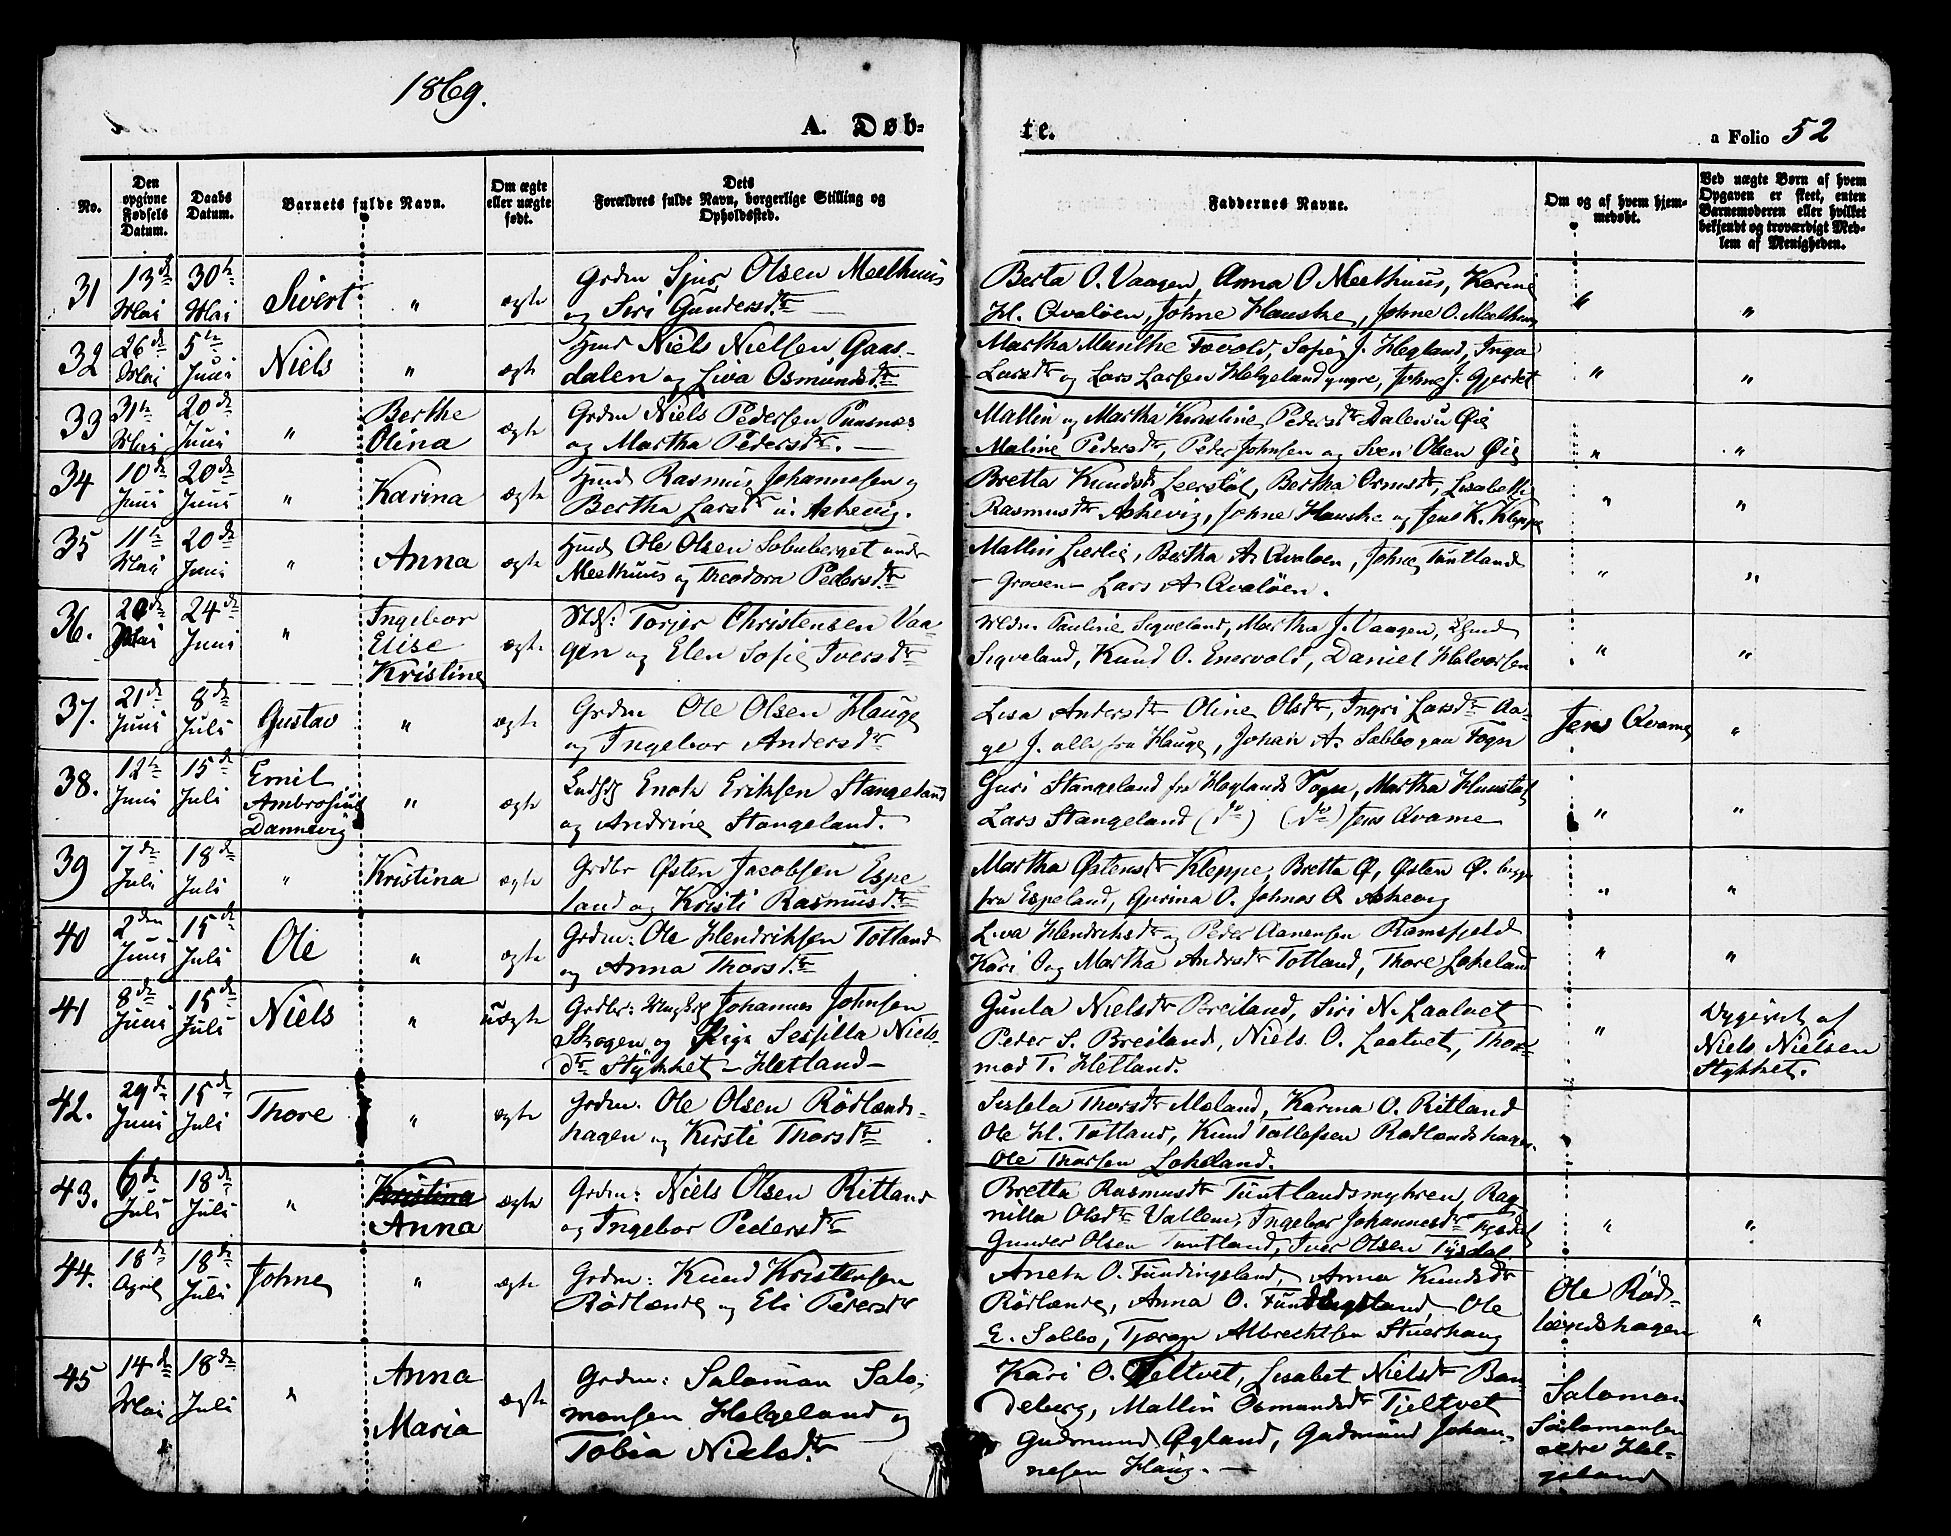 1869.
A. Døb-
te.
a Folio 52
No.
Den
opgivne
Fødsels
Datum.
Daabs
Datum.
Barnets fulde Navn.
Om ægte
eller uægte
født.
Dets
Forældres fulde Navn, borgerlige Stilling og
Opholdssted.
Faddernes Navne.
Om og af hvem hjem-
medøbt.
Ved uægte Børn af hvem
Opgaven er skeet, enten
Barnemoderen eller hvilket
bekjendt og troværdigt Med-
lem af Menigheden.
31 13de Mai 30te Mai Sivert " ægte
Grdm Sjur Olsen Meelhuus
og Siri Gundersd.tr
Berta O. Vaagen, Anna O. Meelhuus, Karine
H. Qvaløen, Johne Hauske, Johne O. Meelhuus
" "
32 26de Mai 5te Juni Niels " ægte
Hmd Niels Nielsen Gaas-
dalen og Liva Osmundsdtr
Martha Munthe Fovold, Sofie J. Hegland, Inga
Larsdtr og Lars Larsen Helgeland yngre, Johne J. Gjerdet
" "
33 31te Mai 20de Juni " Berthe
Olina ægte
Grdm Niels Pedersen Punsnæs
og Martha Pedersdtr.
Mallin og Martha Karoline Pedersdtr Dalen u Øie
Maline Pedersdtr, Peder Johnsen og Sven Olsen Øie
" "
34 10de Juni 20de Juni " Karina ægte
Hmd Rasmus Johannesen og
Bertha Larsdtr u. Askevig.
Bretta Knudsdtr Leerstøl, Bertha Ormsdtr, Lisabeth
Rasmusdtr Askevig, Johne Hauske og Jens K. Kleppe
" "
35 11te Mai 20de Juni " Anna ægte
Hmd Ole Olsen Soluberget under
Meelhuus og Theodora Pedersdtr
Mallin Lierlie, Bertha A. Qvaløen, Johne Tuntland
- Groven - Lars A Qvaløen.
" "
36. 20de Mai 24de Juni " Ingebor
Elise
Kristine ægte.
Torjer Christensen Vaa-
gen og Elen Sofie Iversdtr
Pauline Sigveland, Martha J. Vaagen,
Sigveland, Knud O. Enervold, Daniel Halvorsen
" "
37. 21de Juni 8de Juli Gustav " ægte
Grdm Ole Olsen Hauge
og Ingebor Andersdtr
Lisa Andersdtr Oline Olsdtr, Ingri Larsdtr Aa-
ge J. alle fra Hauge, Johan A. Sabbo paa Fogn
Jens Qvame "
38. 12te Juni 15de Juli Emil
Ambrosius
Dannevig " ægte
Enok Eriksen Stangeland
og Andrine Stangeland.
Guri Stangeland fra Høglands Sogn, Martha Hunstad
Lars Stangeland (do) (do) Jens Qvame
" "
39 7de Juli 18de Juli " Kristina ægte
Grdbr Østen Jacobsen Espe
land og Kristi Rasmusdtr
Martha Østensdtr Kleppe, Bretta Ø, Østen Ø. begge
fra Espeland, Gurina O. Johnas O. Askevig
" "
40 2den Juni 15de Juli Ole " ægte
Grdm: Ole Hendriksen Totland
og Anna Thorsd.tr
Liva Hendriksdtr og Peder Aanensen Ramsfjeld
Kari O og Martha Andersdtr Totland, Thore Lokeland
" "
41 8de Juni 15de Juli Niels " uægte
Grdbr: Ungk Johannes Johnsen
Skogen og Pige Sessilla Niels-
dtr Stykket - Hetland -
Gunla Nielsdtr Breiland, Siri N. Laatvet
Peder S. Breiland, Niels O. Laatvet, Thor-
mod T. Hetland.
"
Opgivet af
Niels Nielsen
Stykket.
42. 29de Juni 15de Juli Thore " ægte
Grdm. Ole Olsen Rødlænds-
hagen og Kirsti Thorsdtr
Sissela Thorsdtr Moland, Karina O. Ritland
Ole H. Totland, Knud Tollefsen Rødlandshagen
Ole Thorsen Lokeland.
43. 6de Juli 18de Juli " Kristina
Anna ægte
Grdm: Niels Olsen Ritland
og Ingebor Pedersdtr
Bretta Rasmusdtr Tuntlandsmyhren, Rag-
nilla Olsdtr Vallem, Ingebor Johannesdtr Tysdal
Gunder Olsen Tuntland, Iver Olsen Tysdal
" "
44. 18de April 18de Juli Johne " ægte
Grdm: Knud Kristensen
Rødlænde og Eli Pedersdtr
Aneta O. Fundingsland, Anna Knudsdtr
Rødlænde, Anna O. Fundingsland, Ole
E. Sabbo, Tjeran Albrechtsen Stuerhaug
Ole Rød-
lændshagen "
45 14de Mai 18de Juli " Anna
Maria ægte
Grdm: Saloman Salo-
monsen Helgeland og
Tobia Nielsd.tr
Kari O. Tieltvet, Lisabet Nielsdtr Ban-
deberg, Mallin Osmundsdtr Tieltvet
Gudmund Øgland, Gudmund Johan-
nesen Haug.
Saloman
Salomonsen
ældre Hel-
geland